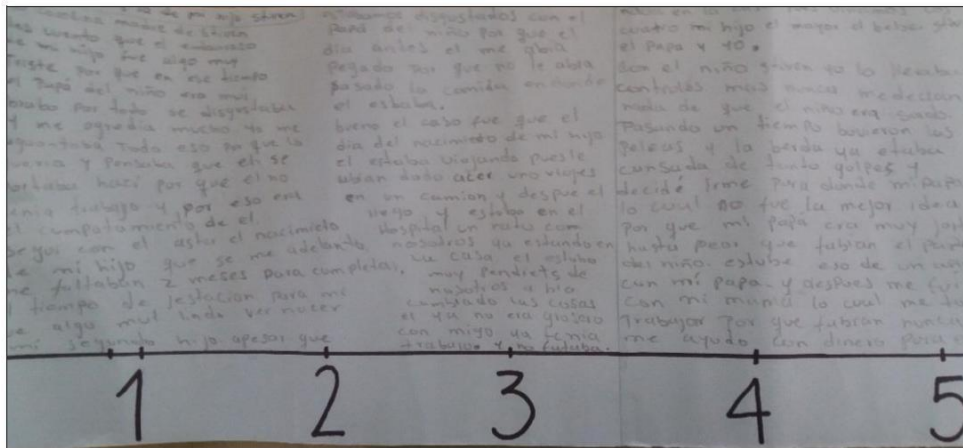 madre de stiven
es cuento que el embarazo
de mi hijo fue algo muy
triste por que en ese tiempo
el Papá del niño era muy
por todo se disgustaba
y me agredia mucho yo me
aguantaba todo eso por que lo
queria y pensaba que el se
portaba haci por que el no
tenia trabajo y por eso era
el comportamiento de el.
con el asta el nacimiento
de mi hijo que se me adelanto,
me faltaban 2 meses para completar
el tiempo de jestacion para mi
fue algo muy lindo ver nacer
mi segundo hijo. apesar que
estabamos disgustados con el
Papá del niño por que el
dia antes el me abia
pegado por que no le abia
pasado la comida en donde
el estaba.
bueno el caso fue que el
dia del nacimiento de mi hijo
el estaba viajando pues le
abian dado acer uno viajes
en un camion y despues el
llego y estubo en el
Hospital un rato con
nosotros ya estando en
la casa el estubo
muy pendiente de
nosotros abia
cambiado las cosas
el ya no era grosero
con migo ya tenia
trabajo y no
cuatro mi hijo el mayor el bebe
el Papá y yo.
con el niño stiven yo lo llevaba
controles mas nunca me decian
nada de que el niño era sordo.
Pasando un tiempo las
peleas y la berda ya estaba
cansada de tanto golpes y
decidé irme para donde mi papa
lo cual no fue la mejor idea
por que mi papá era muy
hasta pior que fabian el papá
del niño. estube eso de un año
con mi papa y despues me fui
con mi mamá lo cual me
trabajar por que fabian nunca
me ayudo con dinero para
1 2 3 4 5